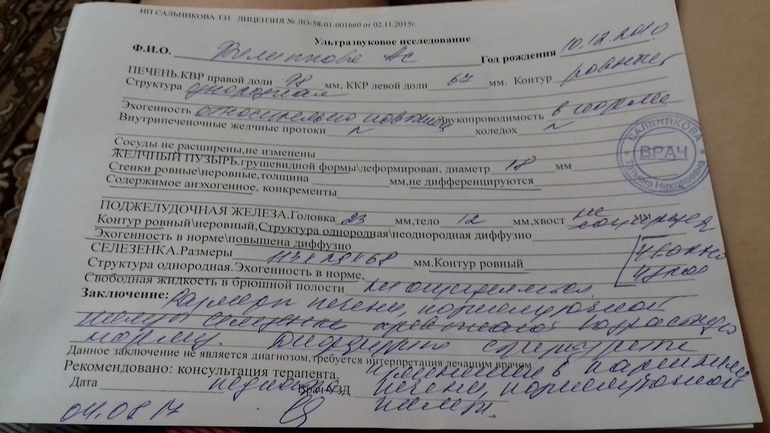 НП САЛЬНИКОВА Т.Н. ЛИЦЕНЗИЯ № ЛО-38-01-001660 от 02.11.2015г.
Ультразвуковое исследование
Ф.И.О. Год рождения 10.12.2010
ПЕЧЕНЬ.КВР правой доли 98 мм, ККР левой доли 67 мм. Контур ровный
Структура однородная
Эхогенность относительно повышен Звукопроводимость в норме
Внутрипеченочные желчные протоки N холедох N
Сосуды не расширены,не изменены
ЖЕЛЧНЫЙ ПУЗЫРЬ.грушевидной формы\деформирован, диаметр 18 мм
Стенки ровные\неровные,толщина мм,не дифференцируются
Содержимое анэхогенное, конкременты
САЛЬНИКОВА
ВРАЧ
Татьяна Николаевна
ПОДЖЕЛУДОЧНАЯ ЖЕЛЕЗА.Головка 23 мм,тело 12 мм,хвост не мм.
Контур ровный\неровный,Структура однородная\неоднородная диффузно
Эхогенность в норме\повышена диффузно
СЕЛЕЗЕНКА.Размеры мм.Контур ровный
Структура однородная.Эхогенность в норме,
Свободная жидкость в брюшной полости не определяется
Заключение: Размеры печени, поджелудочной
железы селезенки превышают возрастную
норму. Диффузно структурные
Данное заключение не является диагнозом,требуется интерпретация лечащим врачом
изменения в паренхиме
Рекомендовано: консультация терапевта, печени, поджелудочной
Дата педиатра Врач УЗД желез.
04.08.17